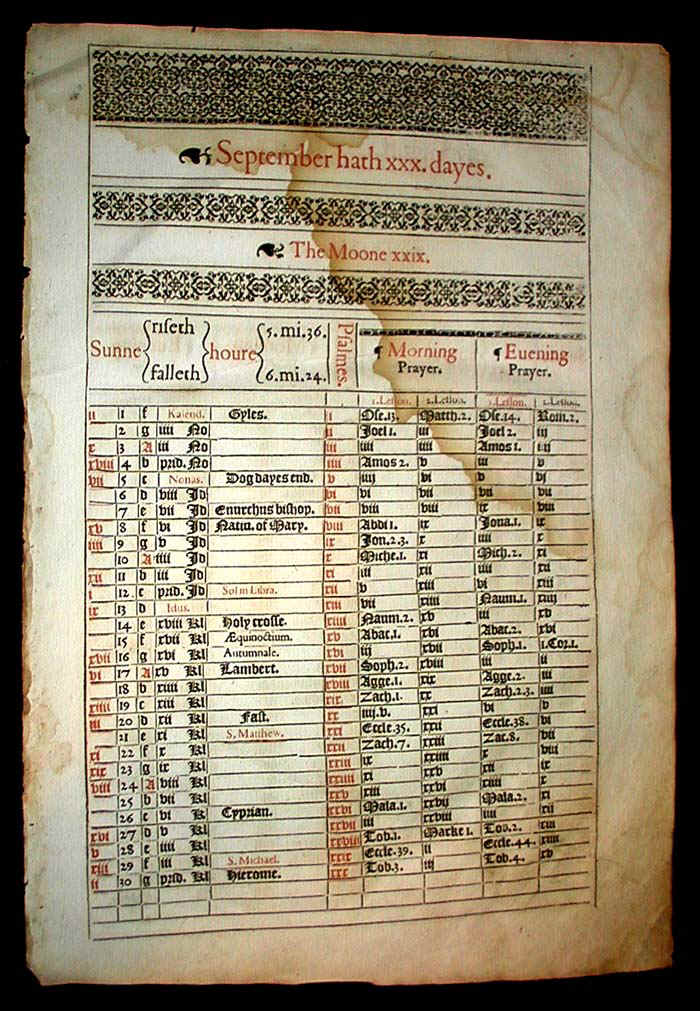 September hath xxx. dayes.
The Moone xxix.
Sunne riſeth falleth houre 5.mi.36. 6.mi.24. Pſalmes. ¶ Morning Prayer. ¶ Euening Prayer.
1.Leſſon. 2.Leſſon. 1.Leſſon. 2.Leſſon.
ii 1 f Kalend. Gyles. i Oſe.13. Matth.2. Oſe.14. Rom.2.
2 g iiii No ii Joel 1. iii Joel 2. iij
x 3 A iii No iii iiii iiii Amos 1. iiij
xviii 4 b prid. No iiii Amos 2. v iii v
vii 5 c Nonas. Dog dayes end. v iiij vi v vi
6 d viii Jd vi vi vii vii vii
7 e vii Jd Enurchus biſhop. vii viii viii ix viii
xv 8 f vi Jd Natiu. of Mary. viii Abdi 1. ix Jona.1. ix
iiii 9 g v Jd ix Jon.2.3. x iiii x
10 A iiii Jd x Miche.1. xi Mich.2. xi
xii 11 b iii Jd xi iii xii iiii xii
i 12 c prid. Jd Sol in Libra. xii v xiii vi xiii
ix 13 d Idus. xiii vii xiiii Naum.1. xiiij
14 e xviii Kl Holy croſſe. xiiii Naum.2. xv iii xv
15 f xvii Kl Æquinoctium. xv Abac.1. xvi Abac.2. xvi
xvii 16 g xvi Kl Autumnale. xvi iij xvii Soph.1. 1.Cor.1.
vi 17 A xv Kl Lambert. xvii Soph.2. xviii iii ii
18 b xiiii Kl xviii Agge.1. xix Agge.2. iii
xiiii 19 c xiii Kl xix Zach.1. xx Zach.2.3. iiii
iii 20 d xii Kl Faſt. xx iiij.v. xxi vi v
21 e xi Kl S. Matthew. xxi Eccle.35. xxii Eccle.38. vi
xi 22 f x Kl xxii Zach.7. xxiii Zac.8. vii
xix 23 g ix Kl xxiii ix xxiiii x viii
viii 24 A viii Kl xxiiii xi xxv xii ix
25 b vii Kl xxv xiii xxvi xiiii x
26 c vi K Cyprian. xxvi Mala.1. xxvij Mala.2. xi
xvi 27 d v Kl xxvii iii xxviii iiii xii
v 28 e iiii Kl xxviii Tob.1. Marke 1. Tob.2. xiii
xiii 29 f iii Kl S. Michael. xxix Eccle.39. ii Eccle.44. xiiii
ii 30 g prid. Kl Hierome. xxx Tob.3. iij Tob.4. xv